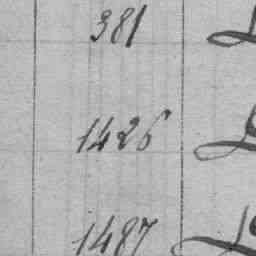 381
1426
1487